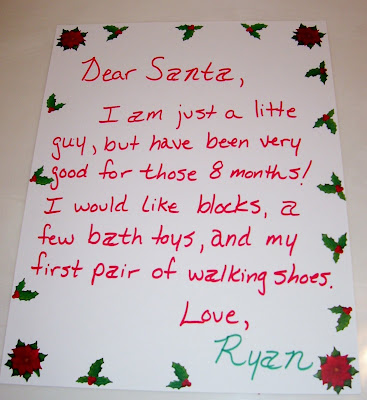 Dear Santa,
I am just a little
guy, but have been very
good for those 8 months!
I would like blocks, a
few bath toys, and my
first pair of walking shoes.
Love,
Ryan